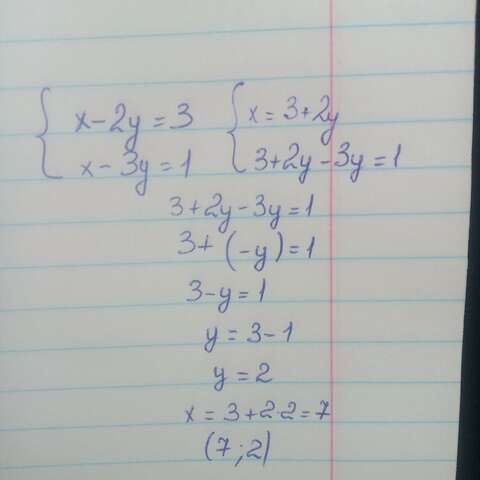 { x-2y=3 { x=3+2y
x-3y=1 3+2y-3y=1
3+2y-3y=1
3+(-y)=1
3-y=1
y=3-1
y=2
x=3+2·2=7
(7;2)